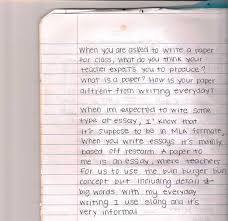 When you are asked to write a paper
for class, what do you think your
teacher expects you to produce?
What is a paper? How is your paper
diffrent from writing everyday?
When im expected to write some
type of essay, I know that
it's suppose to be in MLA formate,
When you write essays it's mainly
based off research. A paper to
me is an essay, where teachers
for us to use the bun burger bun
concept but including detail &
big words. With my everyday
writing I use slang and it's
very informal